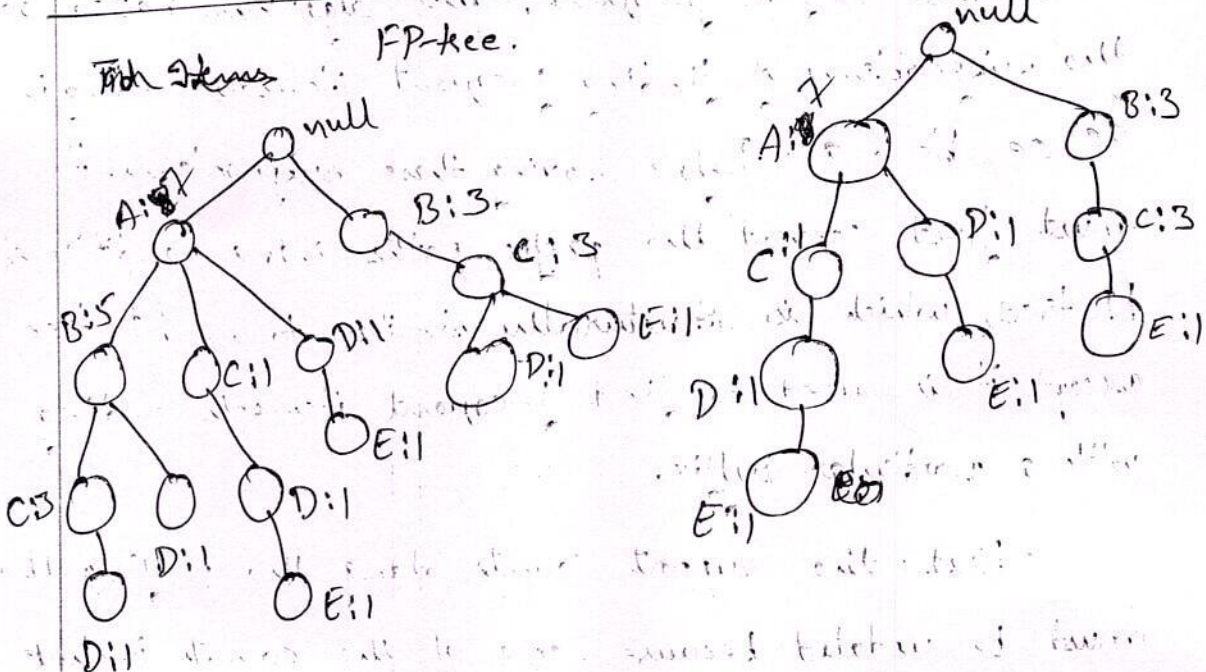 FP-tree.
null
A:7
B:3
C:3
B:5
C:1
D:1
D:1
E:1
E:1
C:3
D:1
D:1
E:1
D:1
null
A:7
B:3
C:1
D:1
C:3
D:1
E:1
E:1
E:1